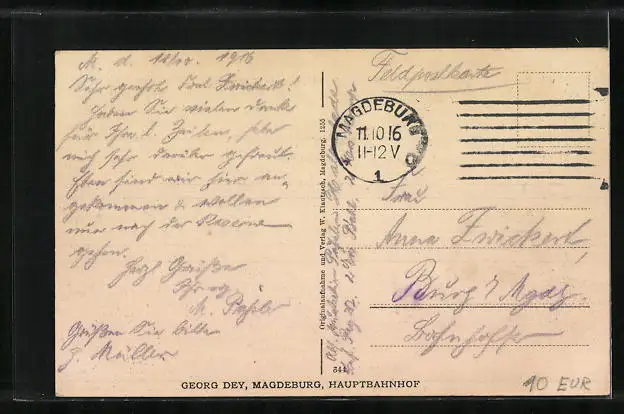 M. d. 10/10. 1916
Sehr geehrte Frau Zwickert!
Haben Sie vielen Dank
für Ihre l. Zeilen, habe
mich sehr darüber gefreut.
Eben sind wir hier an-
gekommen & wollen
nur nach der Kaserne
gehen.
Herzl. Grüße
Ihr
M. Pähler
Grüßen Sie bitte
H. Müller
Originalaufnahme und Verlag W. Klautzsch, Magdeburg. 1255
344
Feldpostkarte
MAGDEBURG
11.10 16
11-12 V
1
Frau
Anna Zwickert
Burg b/ Mgdg.
Bahnhofstr
GEORG DEY, MAGDEBURG, HAUPTBAHNHOF
10 EUR